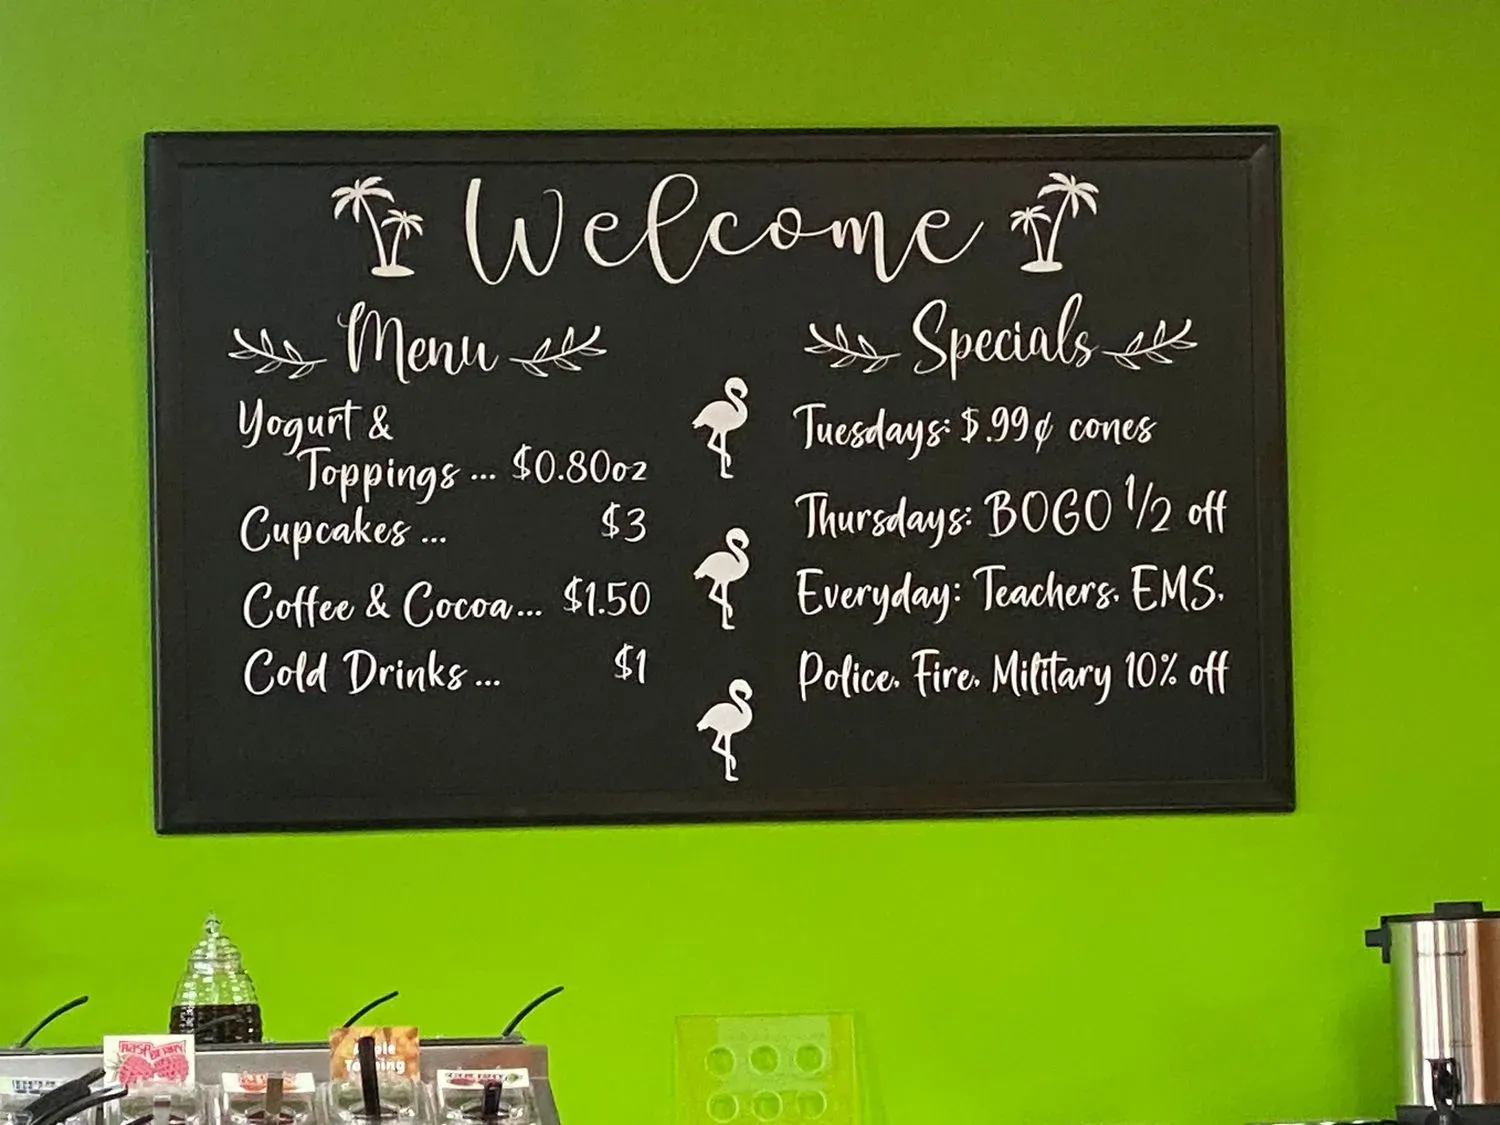 Welcome
Menu
Yogurt &
Toppings ... $0.80oz
Cupcakes ... $3
Coffee & Cocoa... $1.50
Cold Drinks ... $1
Specials
Tuesdays: $.99¢ cones
Thursdays: BOGO 1/2 off
Everyday: Teachers, EMS,
Police, Fire, Military 10% off
RASPBERRY
Topping